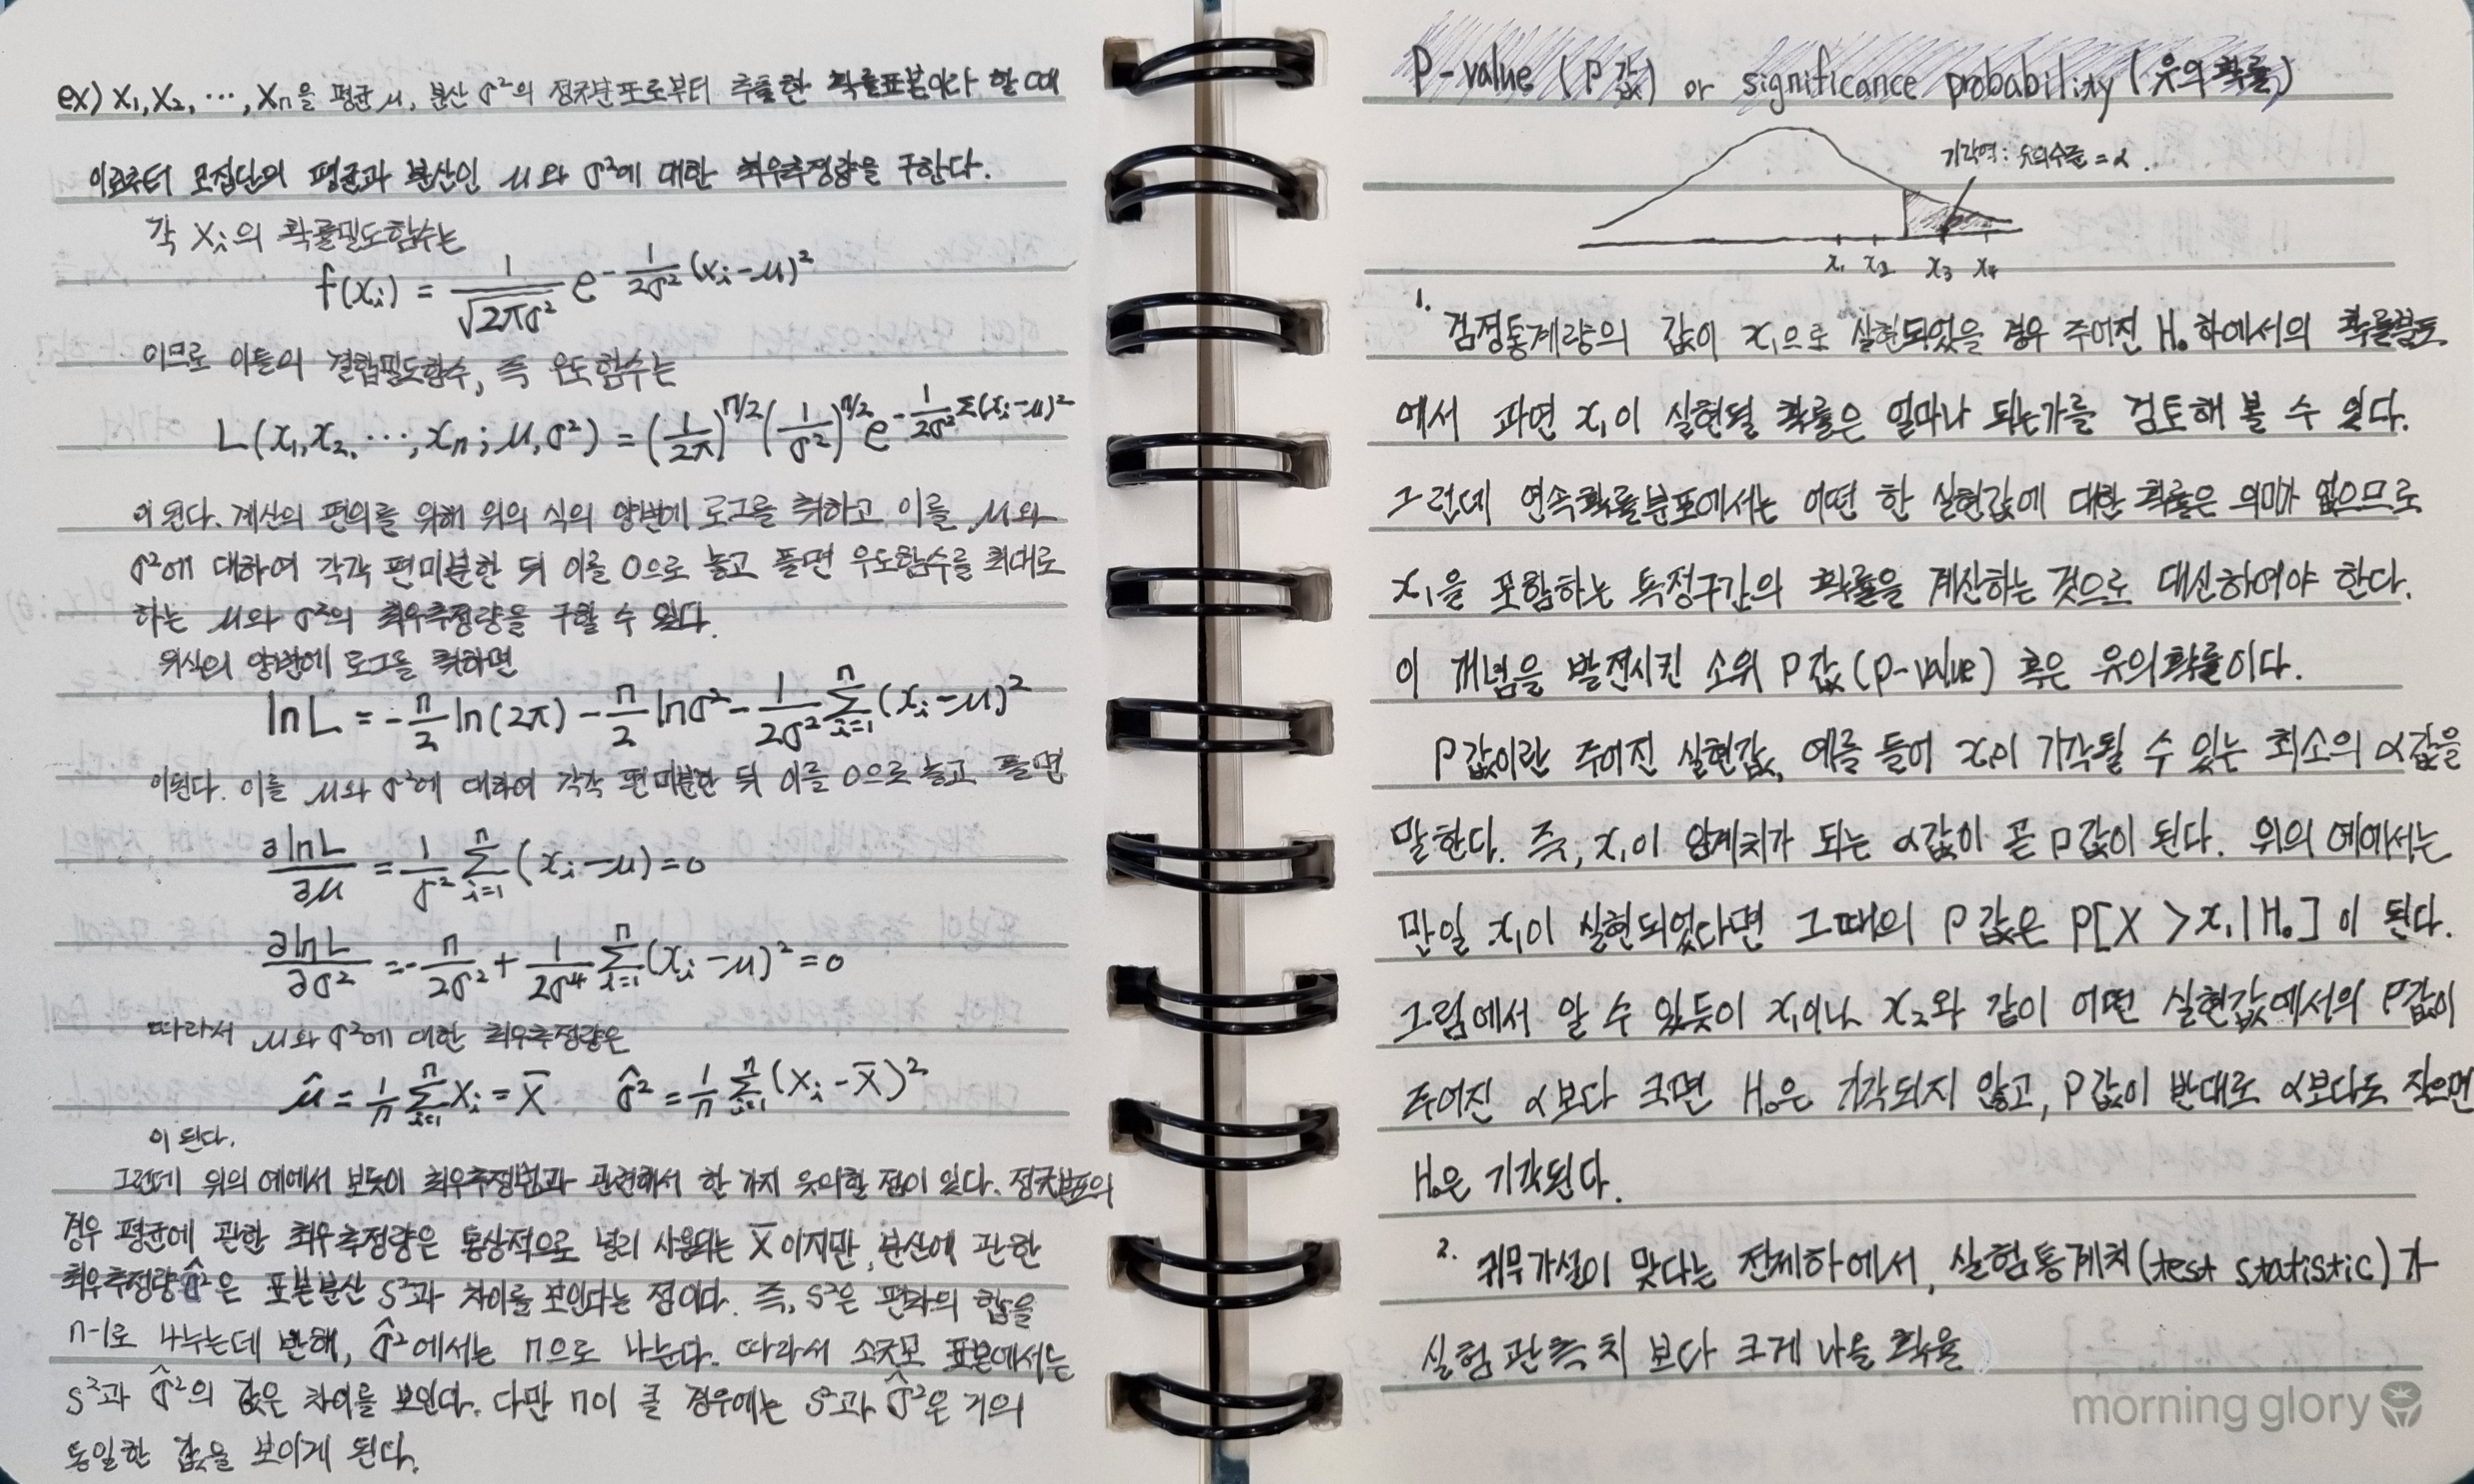 ex) X₁, X₂, ⋯, Xₙ을 평균 μ, 분산 σ²의 정규분포로부터 추출한 확률표본이라 할 때
이로부터 모집단의 평균과 분산인 μ와 σ²에 대한 최우추정량을 구한다.
각 Xᵢ의 확률밀도함수는
f(xᵢ) = 1/√(2πσ²) e^(-1/(2σ²) (xᵢ-μ)²)
이므로 이들의 결합밀도함수, 즉 우도함수는
L(x₁, x₂, ⋯, xₙ; μ, σ²) = (1/2π)^(n/2) (1/σ²)^(n/2) e^(-1/(2σ²) Σ(xᵢ-μ)²)
이 된다. 계산의 편의를 위해 위의 식의 양변에 로그를 취하고 이를 μ와
σ²에 대하여 각각 편미분한 뒤 이를 0으로 놓고 풀면 우도함수를 최대로
하는 μ와 σ²의 최우추정량을 구할 수 있다.
위식의 양변에 로그를 취하면
ln L = -n/2 ln(2π) - n/2 lnσ² - 1/(2σ²) Σⁿᵢ₌₁ (xᵢ-μ)²
이된다. 이를 μ와 σ²에 대하여 각각 편미분한 뒤 이를 0으로 놓고 풀면
∂lnL/∂μ = 1/σ² Σⁿᵢ₌₁ (xᵢ-μ) = 0
∂lnL/∂σ² = -n/(2σ²) + 1/(2σ⁴) Σⁿᵢ₌₁ (xᵢ-μ)² = 0
따라서 μ와 σ²에 대한 최우추정량은
μ̂ = 1/n Σⁿᵢ₌₁ Xᵢ = X̄ σ̂² = 1/n Σⁿᵢ₌₁ (Xᵢ-X̄)²
이 된다.
그런데 위의 예에서 보듯이 최우추정법과 관련해서 한 가지 유의할 점이 있다. 정규분포의
경우 평균에 관한 최우추정량은 통상적으로 널리 사용되는 X̄이지만, 분산에 관한
최우추정량 σ̂²은 표본분산 S²과 차이를 보인다는 점이다. 즉, S²은 편차의 합을
n-1로 나누는데 반해, σ̂²에서는 n으로 나눈다. 따라서 소규모 표본에서는
S²과 σ̂²의 값은 차이를 보인다. 다만 n이 클 경우에는 S²과 σ̂²은 거의
동일한 값을 보이게 된다.
P-value (P값) or significance probability (유의확률)
기각역: 유의수준 = α.
x₁ x₂ x₃ x₄
1. 검정통계량의 값이 x₁으로 실현되었을 경우 주어진 H₀하에서의 확률분포
에서 과연 x₁이 실현될 확률은 얼마나 되는가를 검토해 볼 수 있다.
그런데 연속확률분포에서는 어떤 한 실현값에 대한 확률은 의미가 없으므로
x₁을 포함하는 특정구간의 확률을 계산하는 것으로 대신하여야 한다.
이 개념을 발전시킨 소위 P값(p-value) 혹은 유의확률이다.
P값이란 주어진 실현값, 예를 들어 x₁이 기각될 수 있는 최소의 α값을
말한다. 즉, x₁이 임계치가 되는 α값이 곧 p값이 된다. 위의 예에서는
만일 x₁이 실현되었다면 그때의 P값은 P[X > x₁|H₀]이 된다.
그림에서 알 수 있듯이 x₁이나 x₂와 같이 어떤 실현값에서의 P값이
주어진 α보다 크면 H₀은 기각되지 않고, P값이 반대로 α보다도 작으면
H₀은 기각된다.
2. 귀무가설이 맞다는 전제하에서, 실험통계치(test statistic)가
실험관측치 보다 크게 나올 확율
morning glory